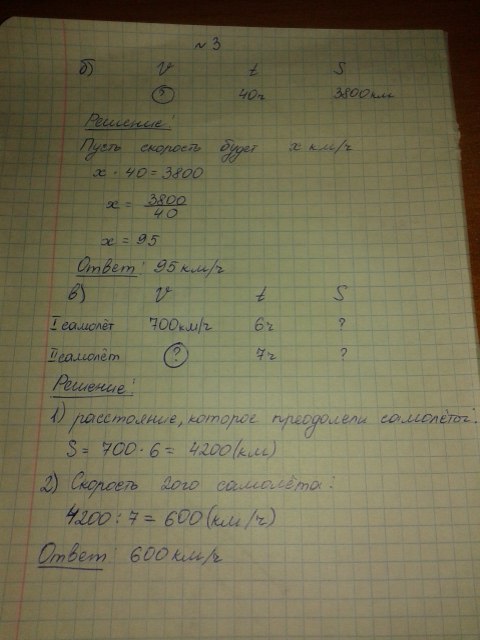 №3
б) V t S
? 40ч 3800км
Решение:
Пусть скорость будет x км/ч
x · 40 = 3800
x = 3800/40
x = 95
Ответ: 95км/ч
в) V t S
I самолёт 700км/ч 6ч ?
II самолёт ? 7ч ?
Решение:
1) расстояние, которое преодолели самолёты:
S = 700 · 6 = 4200(км)
2) Скорость 2ого самолёта:
4200 : 7 = 600(км/ч)
Ответ: 600км/ч